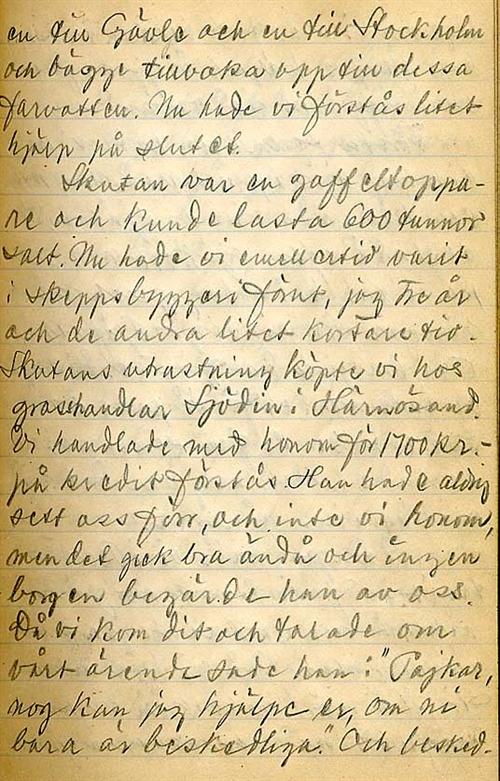 en till Gävle och en till Stockholm
och bägge tillbaka opp till dessa
farvatten. Nu hade vi förstås litet
hjälp på slutet.
Skutan var en gaffeltoppa-
re och kunde lasta 600 tunnor
salt. Nu hade vi emellertid varit
i skeppsbyggeri förut, jag tre år
och de andra litet kortare tid.
Skutans utrustning köpte vi hos
grosshandlar Sjödin i Härnösand.
Vi handlade med honom för 1700 kr:-
på kredit förstås. Han hade aldrig
sett oss förr, och inte vi honom,
men det gick bra ändå och ingen
borgen begärde han av oss.
Då vi kom dit och talade om
vårt ärende sade han: "Pojkar,
nog kan jag hjälpe er, om ni
bara är beskedliga." Och besked-